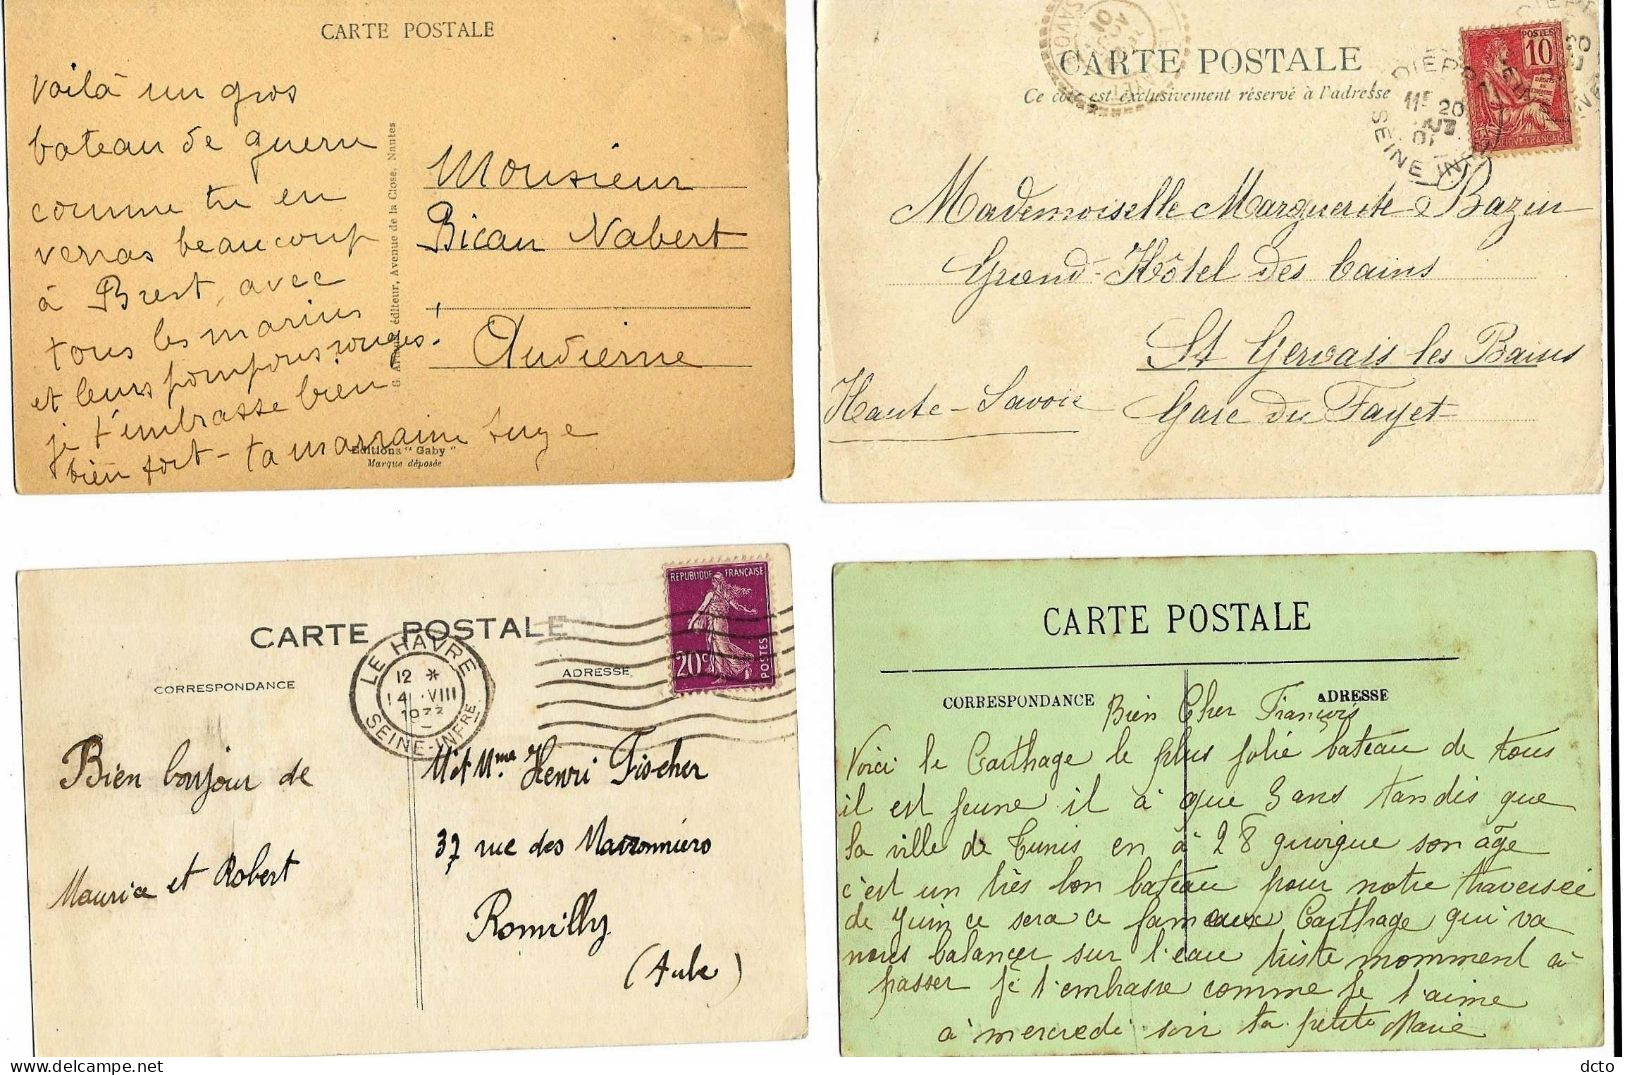 CARTE POSTALE
voilà un gros
bateau de guerre
comme tu en
verras beaucoup
à Brest, avec
tous les marins
et leurs pompons rouges.
je t'embrasse bien
bien fort - ta marraine
Monsieur
Bican Nabert
Audierne
éditeur, Avenue de la Close, Nantes
Editions "Gaby"
Marque déposée
CARTE POSTALE
Ce côté est exclusivement réservé à l'adresse
POSTES
10
DIEPPE
11E 20
01
SEINE INF
Mademoiselle Marguerite Bazin
Grand-Hôtel des bains
St Gervais les Bains
Gare du Fayet
Haute-Savoie
CARTE POSTALE
CORRESPONDANCE
ADRESSE
REPUBLIQUE FRANÇAISE
20c
POSTES
LE HAVRE
12 *
14 VIII
SEINE-INFRE
Bien bonjour de
Maurice et Robert
M et Mme Henri Fischer
37 rue des Marronniers
Romilly
(Aube)
CARTE POSTALE
CORRESPONDANCE
ADRESSE
Bien Cher François
Voici le Carthage le plus jolie bateau de tous
il est jeune il à que 3 ans tandis que
la ville de Tunis en à 28 quoique son âge
c'est un très bon bateau pour notre traversée
de Juin ce sera ce fameaux Carthage qui va
nous balancer sur l'eau triste momment à
passer je t'embrasse comme je t'aime
à mercredi soir ta petite Marie
dcto